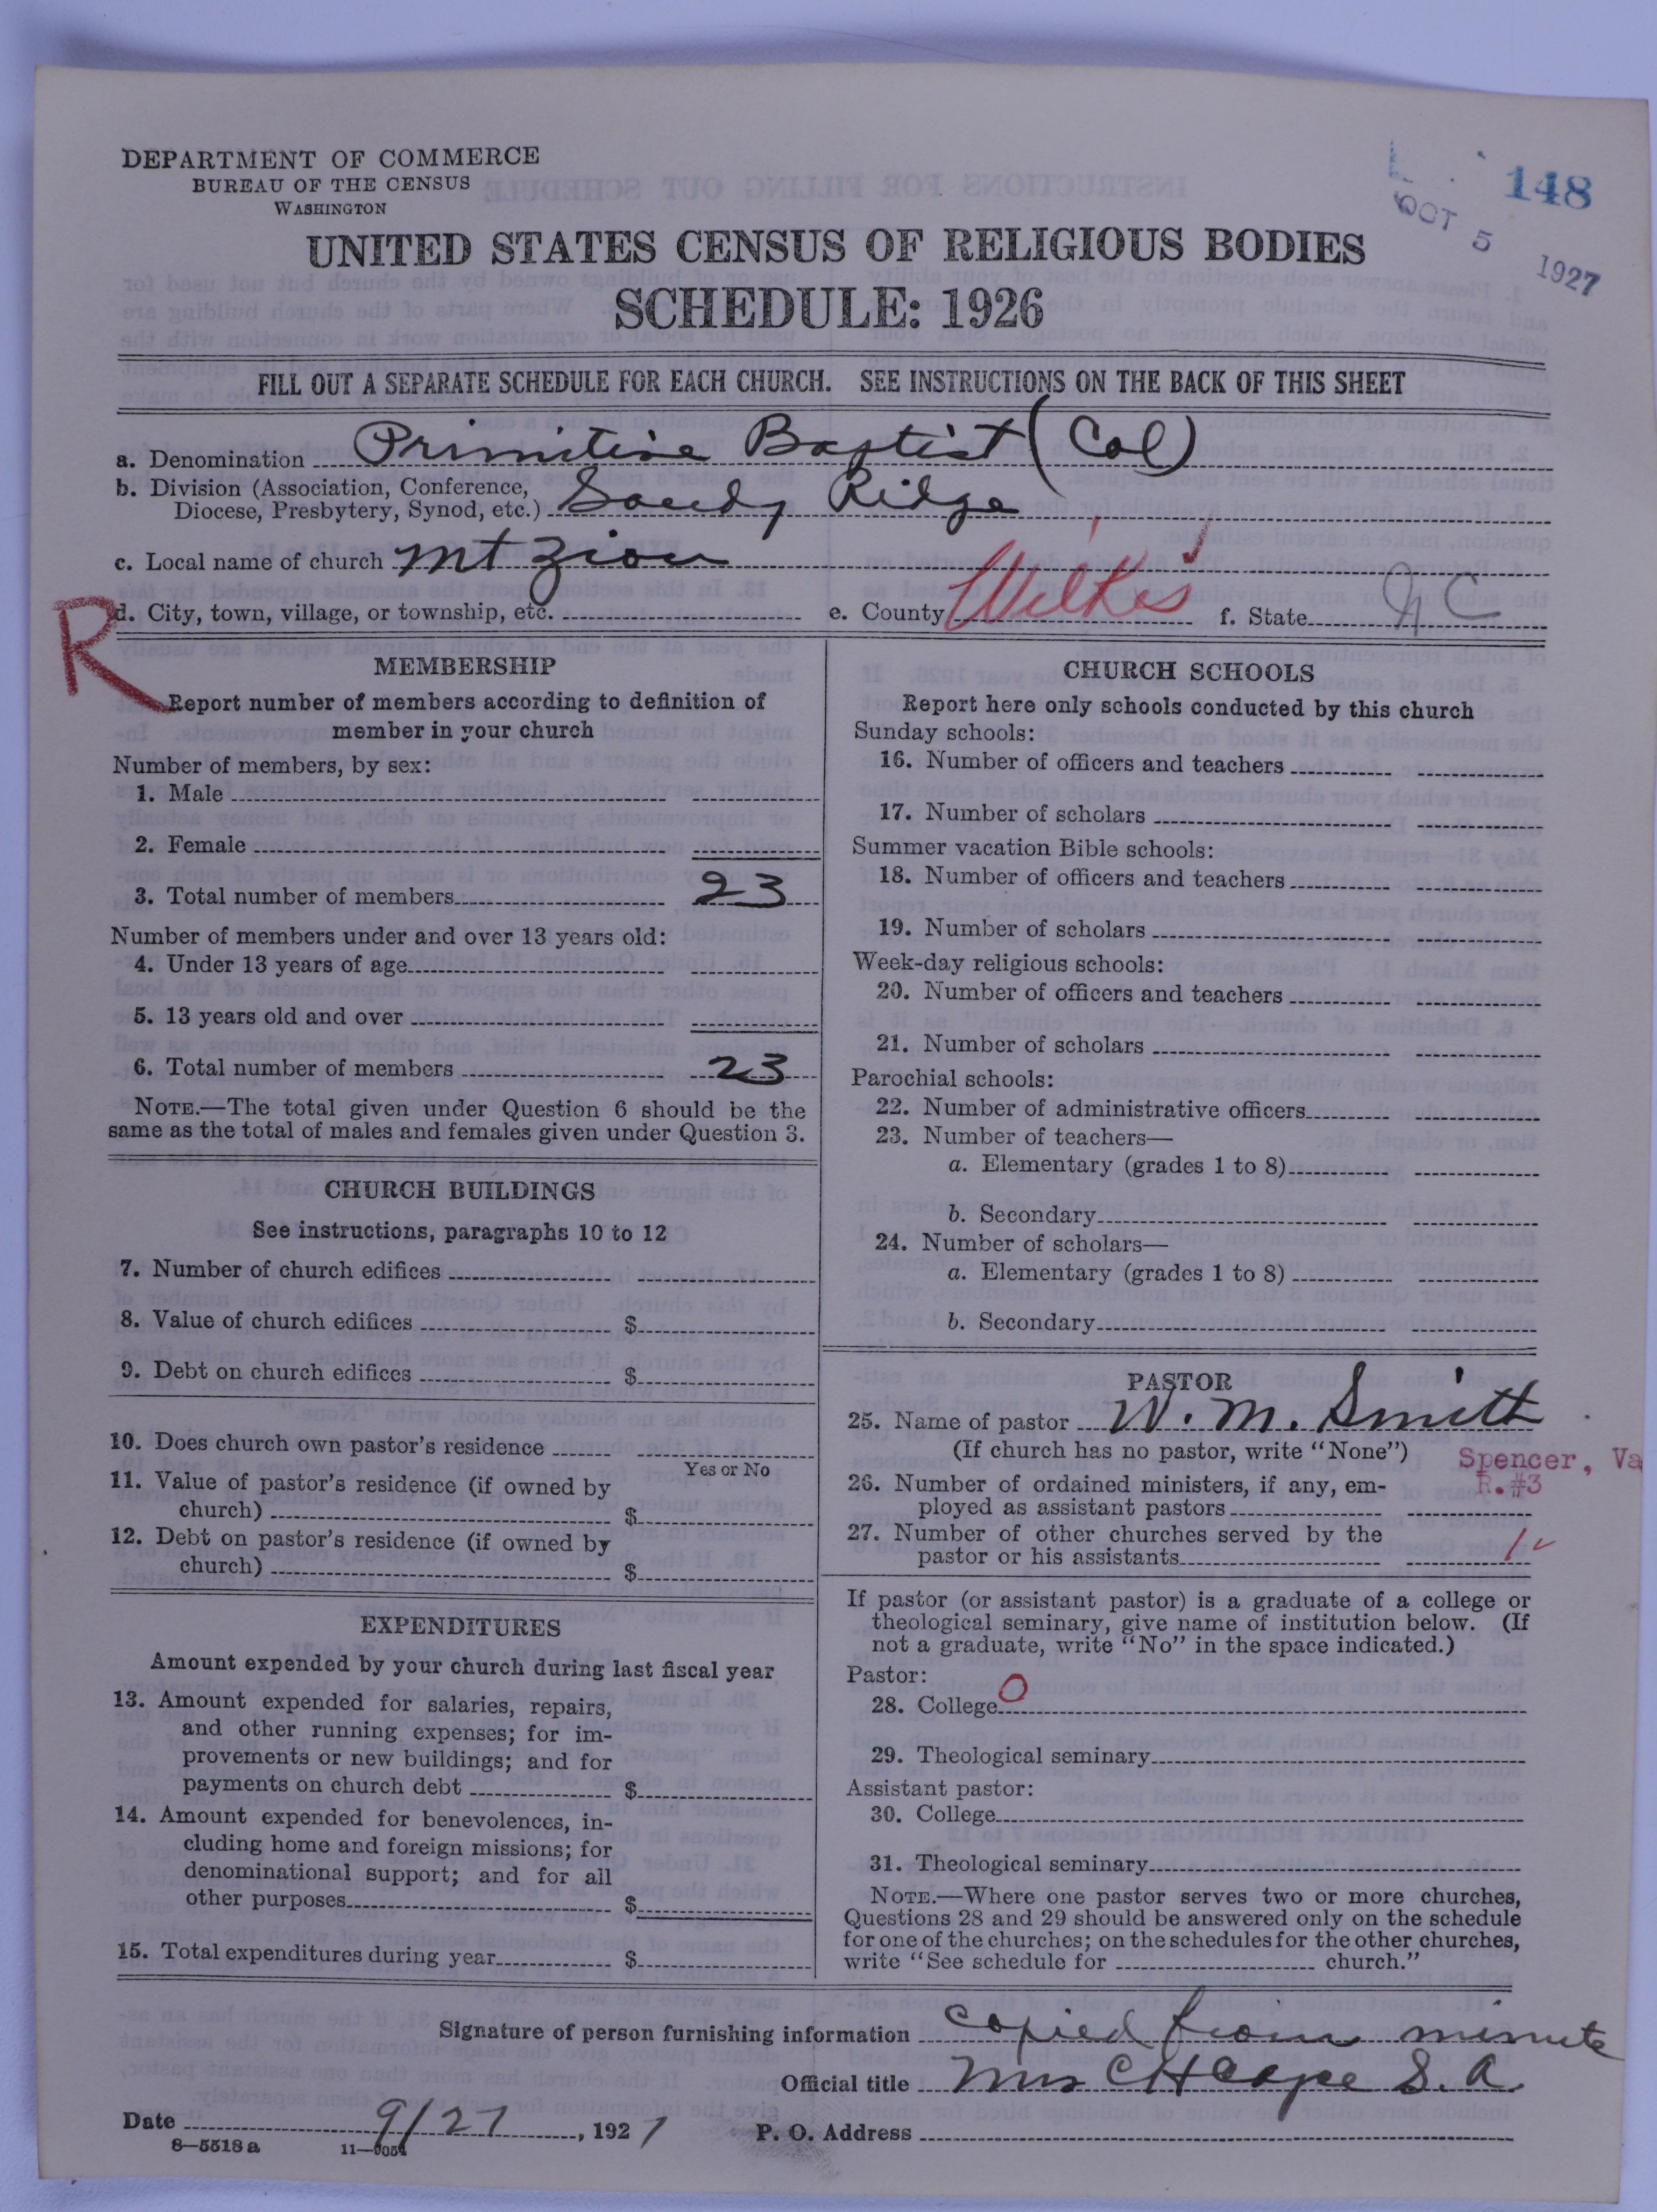 DEPARTMENT OF COMMERCE
BUREAU OF THE CENSUS
WASHINGTON
148
OCT 5 1927
UNITED STATES CENSUS OF RELIGIOUS BODIES
SCHEDULE: 1926
FILL OUT A SEPARATE SCHEDULE FOR EACH CHURCH. SEE INSTRUCTIONS ON THE BACK OF THIS SHEET
a. Denomination Primitive Baptist (Col)
b. Division (Association, Conference,
Diocese, Presbytery, Synod, etc.) Sandy Ridge
c. Local name of church Mt Zion
R
d. City, town, village, or township, etc. e. County Wilkes f. State N C
MEMBERSHIP
Report number of members according to definition of
member in your church
Number of members, by sex:
1. Male
2. Female
3. Total number of members 23
Number of members under and over 13 years old:
4. Under 13 years of age
5. 13 years old and over
6. Total number of members 23
NOTE.—The total given under Question 6 should be the
same as the total of males and females given under Question 3.
CHURCH BUILDINGS
See instructions, paragraphs 10 to 12
7. Number of church edifices
8. Value of church edifices $
9. Debt on church edifices $
10. Does church own pastor's residence
Yes or No
11. Value of pastor's residence (if owned by
church) $
12. Debt on pastor's residence (if owned by
church) $
EXPENDITURES
Amount expended by your church during last fiscal year
13. Amount expended for salaries, repairs,
and other running expenses; for im-
provements or new buildings; and for
payments on church debt $
14. Amount expended for benevolences, in-
cluding home and foreign missions; for
denominational support; and for all
other purposes $
15. Total expenditures during year $
CHURCH SCHOOLS
Report here only schools conducted by this church
Sunday schools:
16. Number of officers and teachers
17. Number of scholars
Summer vacation Bible schools:
18. Number of officers and teachers
19. Number of scholars
Week-day religious schools:
20. Number of officers and teachers
21. Number of scholars
Parochial schools:
22. Number of administrative officers
23. Number of teachers—
a. Elementary (grades 1 to 8)
b. Secondary
24. Number of scholars—
a. Elementary (grades 1 to 8)
b. Secondary
PASTOR
25. Name of pastor W. M. Smith
(If church has no pastor, write "None") Spencer, Va
R.#3
26. Number of ordained ministers, if any, em-
ployed as assistant pastors
27. Number of other churches served by the
pastor or his assistants 1
If pastor (or assistant pastor) is a graduate of a college or
theological seminary, give name of institution below. (If
not a graduate, write "No" in the space indicated.)
Pastor:
28. College O
29. Theological seminary
Assistant pastor:
30. College
31. Theological seminary
NOTE.—Where one pastor serves two or more churches,
Questions 28 and 29 should be answered only on the schedule
for one of the churches; on the schedules for the other churches,
write "See schedule for church."
Signature of person furnishing information copied from minute
Official title Mrs C H Cape S. A.
Date 9/27, 1927 P. O. Address
8—5518 a